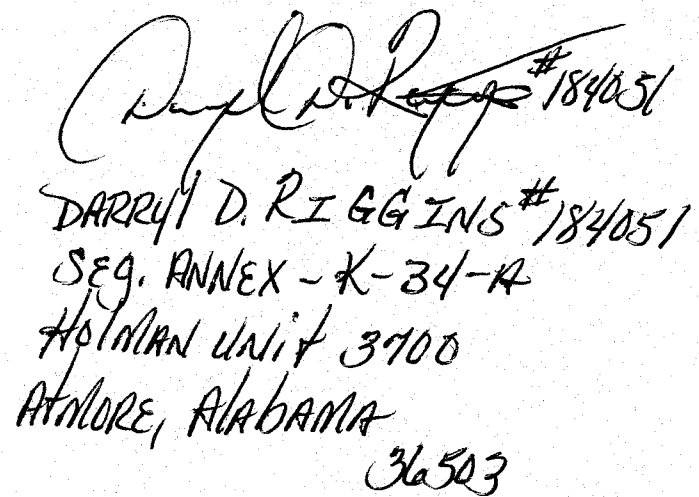 Darryl D. Riggins #184051
DARRYl D. RIGGINS #184051
SEg. ANNEX - K-34-A
HOlMAN UNit 3700
AtMORE, AlAbAMA
36503